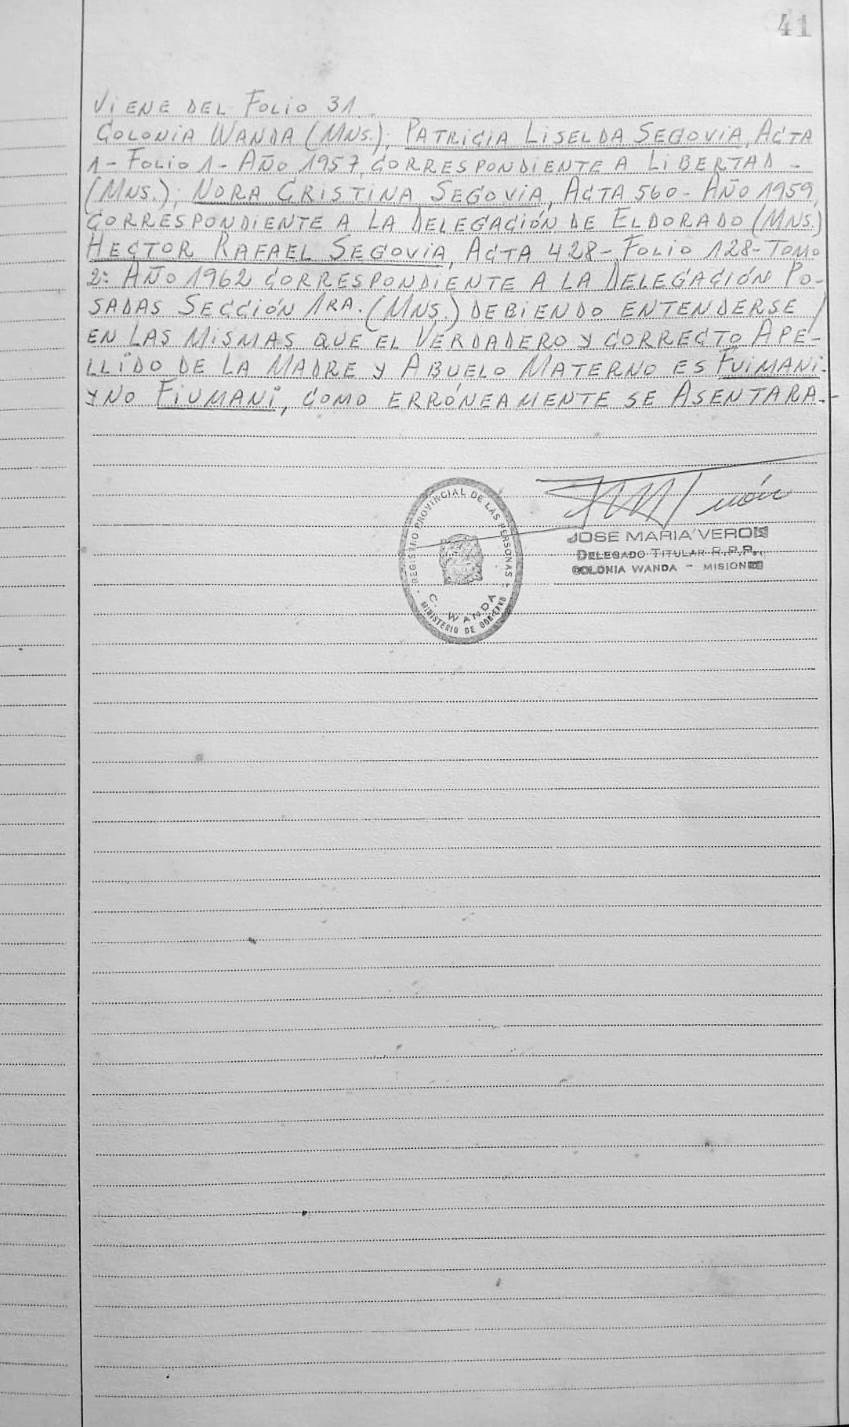 41
VIENE DEL FOLIO 31.
COLONIA WANDA (MNS.); PATRICIA LISELDA SEGOVIA, ACTA
1 - FOLIO 1 - AÑO 1957, CORRESPONDIENTE A LIBERTAD -
(MNS.); NORA CRISTINA SEGOVIA, ACTA 560 - AÑO 1959,
CORRESPONDIENTE A LA DELEGACIÓN DE ELDORADO (MNS.)
HECTOR RAFAEL SEGOVIA, ACTA 428 - FOLIO 128 - TOMO
2: AÑO 1962 CORRESPONDIENTE A LA DELEGACIÓN PO-
SADAS SECCIÓN 1RA. (MNS.) DEBIENDO ENTENDERSE /
EN LAS MISMAS QUE EL VERDADERO Y CORRECTO APE-
LLIDO DE LA MADRE Y ABUELO MATERNO ES FUIMANI.
Y NO FIUMANI, COMO ERRÓNEAMENTE SE ASENTARA.-
REGISTRO PROVINCIAL DE LAS PERSONAS
C. WANDA
MINISTERIO DE GOBIERNO
JOSE MARIA VERON
DELEGADO TITULAR R.P.P.
COLONIA WANDA - MISIONES